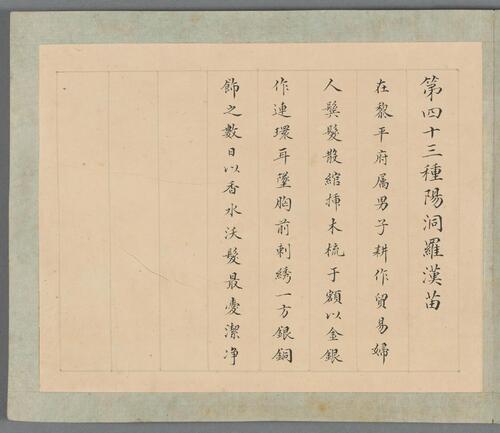 第四十三種陽洞羅漢苗
在黎平府属男子耕作貿易婦
人鬓髮散綰揷木梳于額以金銀
作連環耳墜胸前刺綉一方銀銅
飾之數日以香水沃髮最愛潔净